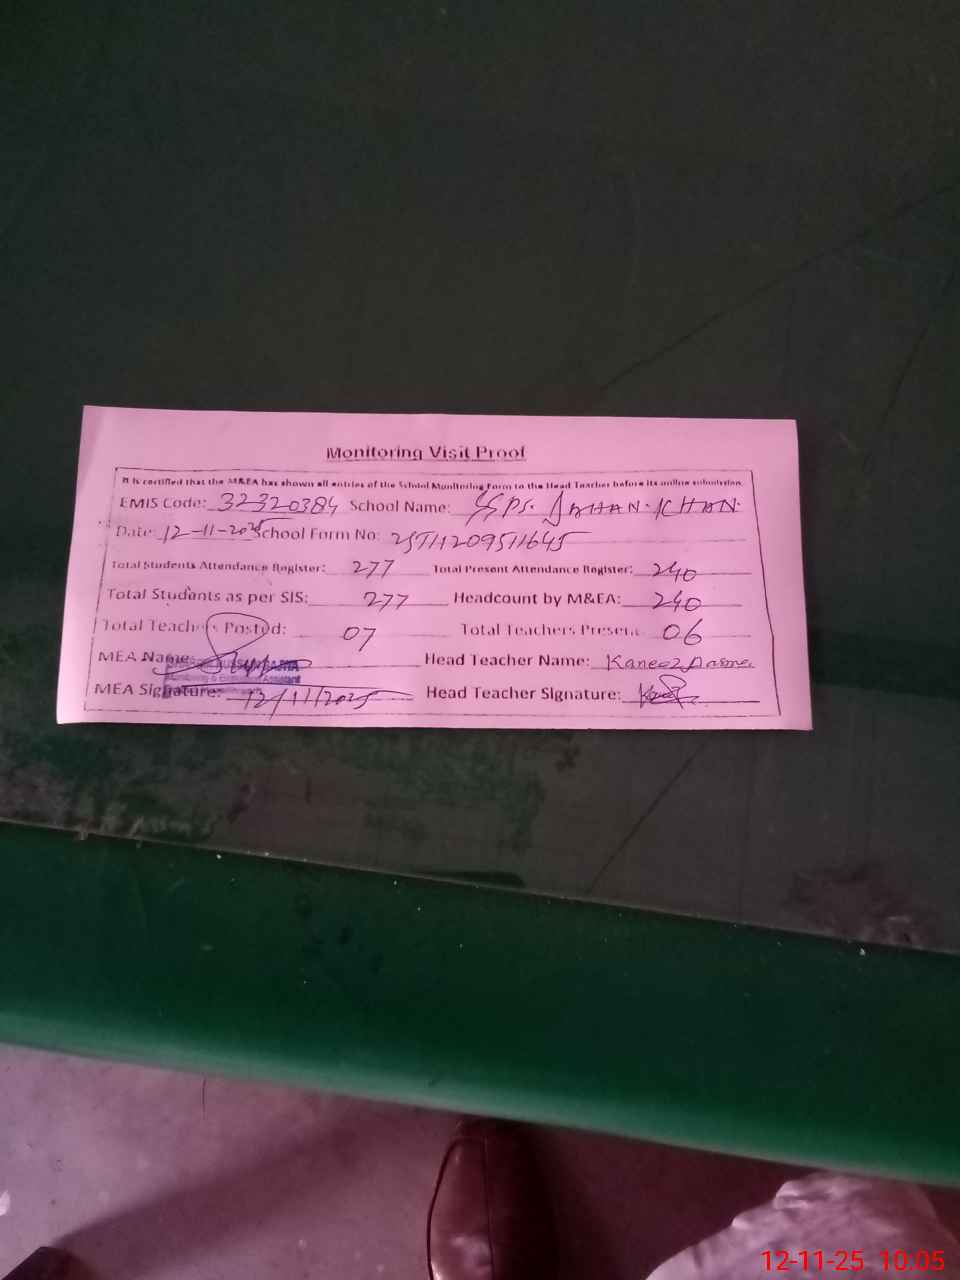 Monitoring Visit Proof
It is certified that the M&EA has shown all entries of the School Monitoring Form to the Head Teacher before its online submission.
EMIS Code: 32320384 School Name: JAHAN.KHAN.
Date: 12-11-2025 School Form No:
Total Students Attendance Register: 277 Total Present Attendance Register: 240
Total Students as per SIS: 277 Headcount by M&EA: 240
Total Teachers Posted: 07 Total Teachers Present: 06
MEA Name: Head Teacher Name: Kaneez
Monitoring & Evaluation Assistant
MEA Signature: 12/11/2025 Head Teacher Signature:
12-11-25 10:05